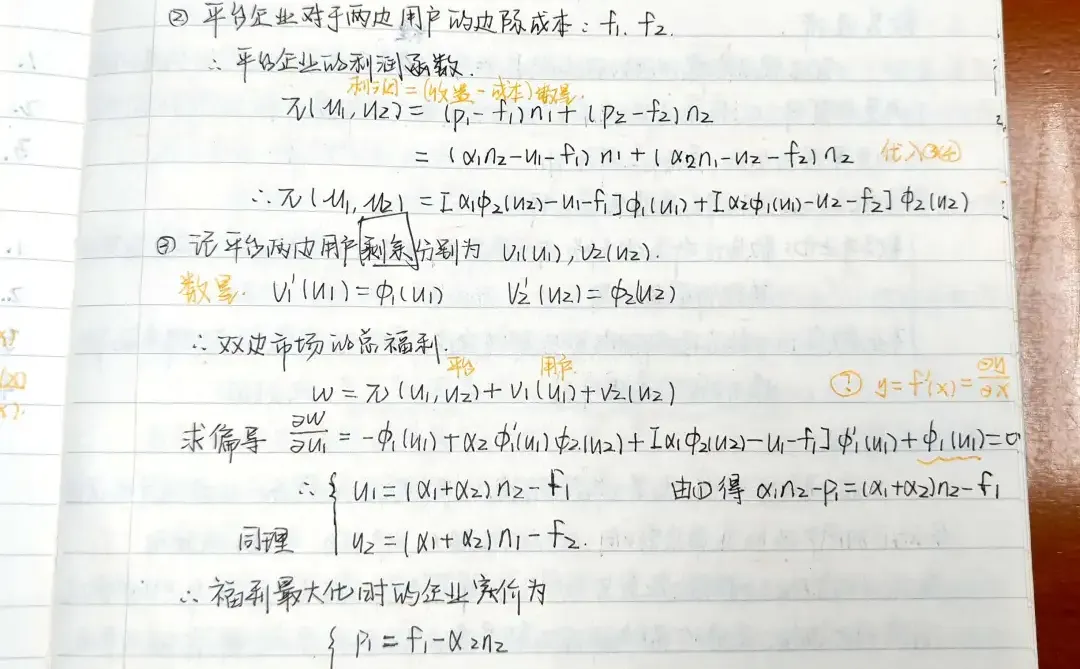 ② 平台企业对于两边用户的边际成本：f₁、f₂.
∴ 平台企业的利润函数.
利润=(收益-成本)数量.
π(u₁,u₂) = (p₁-f₁)n₁+(p₂-f₂)n₂
= (α₁n₂-u₁-f₁)n₁+(α₂n₁-u₂-f₂)n₂ 代入③④
∴ π(u₁,u₂) = [α₁φ₂(u₂)-u₁-f₁]φ₁(u₁)+[α₂φ₁(u₁)-u₂-f₂]φ₂(u₂)
③ 记平台两边用户剩余分别为 V₁(u₁), V₂(u₂).
数量. V₁'(u₁)=φ₁(u₁) V₂'(u₂)=φ₂(u₂)
∴ 双边市场的总福利.
平台 用户
W = π(u₁,u₂)+V₁(u₁)+V₂(u₂) ① y=f'(x)=∂y/∂x
求偏导 ∂W/∂u₁ = -φ₁(u₁)+α₂φ₁'(u₁)φ₂(u₂)+[α₁φ₂(u₂)-u₁-f₁]φ₁'(u₁)+φ₁(u₁)=0
∴ { u₁=(α₁+α₂)n₂-f₁ 由①得 α₁n₂-p₁=(α₁+α₂)n₂-f₁
同理 u₂=(α₁+α₂)n₁-f₂.
∴ 福利最大化时的企业定价为
{ p₁=f₁-α₂n₂